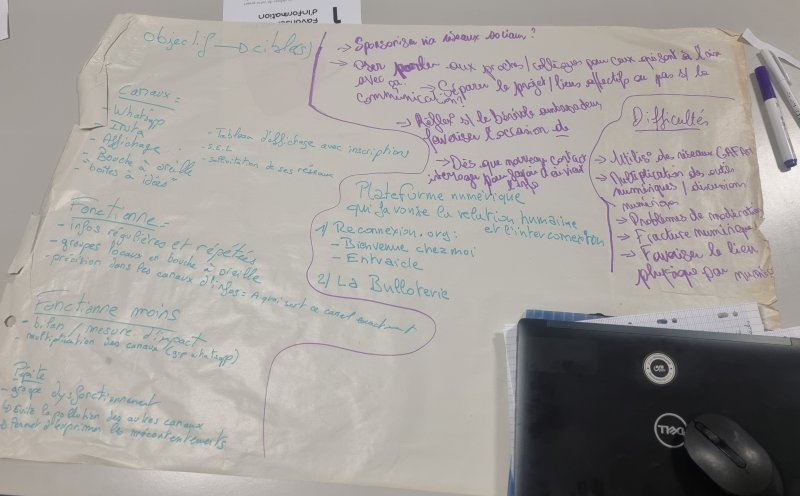 1
Favoriser
d'information
Objectif → cible(s)
Canaux :
- Whatsapp
- Insta
- Affichage
- Bouche à oreille
- "boîtes à idées"
- Tableau d'affichage avec inscriptions
- S.E.L
- sollicitation de ses réseaux
Fonctionne :
- infos régulières et répétées
- groupes locaux en bouche à oreille
- précision dans les canaux d'infos : A quoi sert ce canal exactement
Fonctionne moins
- bilan / mesure d'impact
- multiplication des canaux (grp whatsapp)
Pépite
- groupe dysfonctionnement
↳ Evite la pollution des autres canaux
Permet d'exprimer les mécontentements
→ Sponsoriser via réseaux sociaux ?
→ Oser parler aux proches / collègues pour ceux qui sont à l'aise
avec ça.
→ Séparer le projet / liens affectifs ou pas s/ la
communication ?
→ Réflex s/ le binôme ambassadeur
favoriser l'occasion de
→ Dès que nouveau contact
Plateforme numérique
qui favorise la relation humaine
et l'interconnection
1) Reconnexion.org :
- Bienvenue chez moi
- Entraide
2) La Bulloterie
Difficultés
→ Utilis° des réseaux GAFAM
→ Multiplication des outils
numériques / discussion
numérique
→ Problèmes de modération
→ Fracture numérique
→ Favoriser le lien
physique par numér
DELL